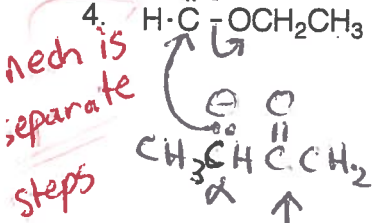 4. H·C-OCH₂CH₃
mech is
separate
steps
⊖ O
CH₃CHCCH₂
α